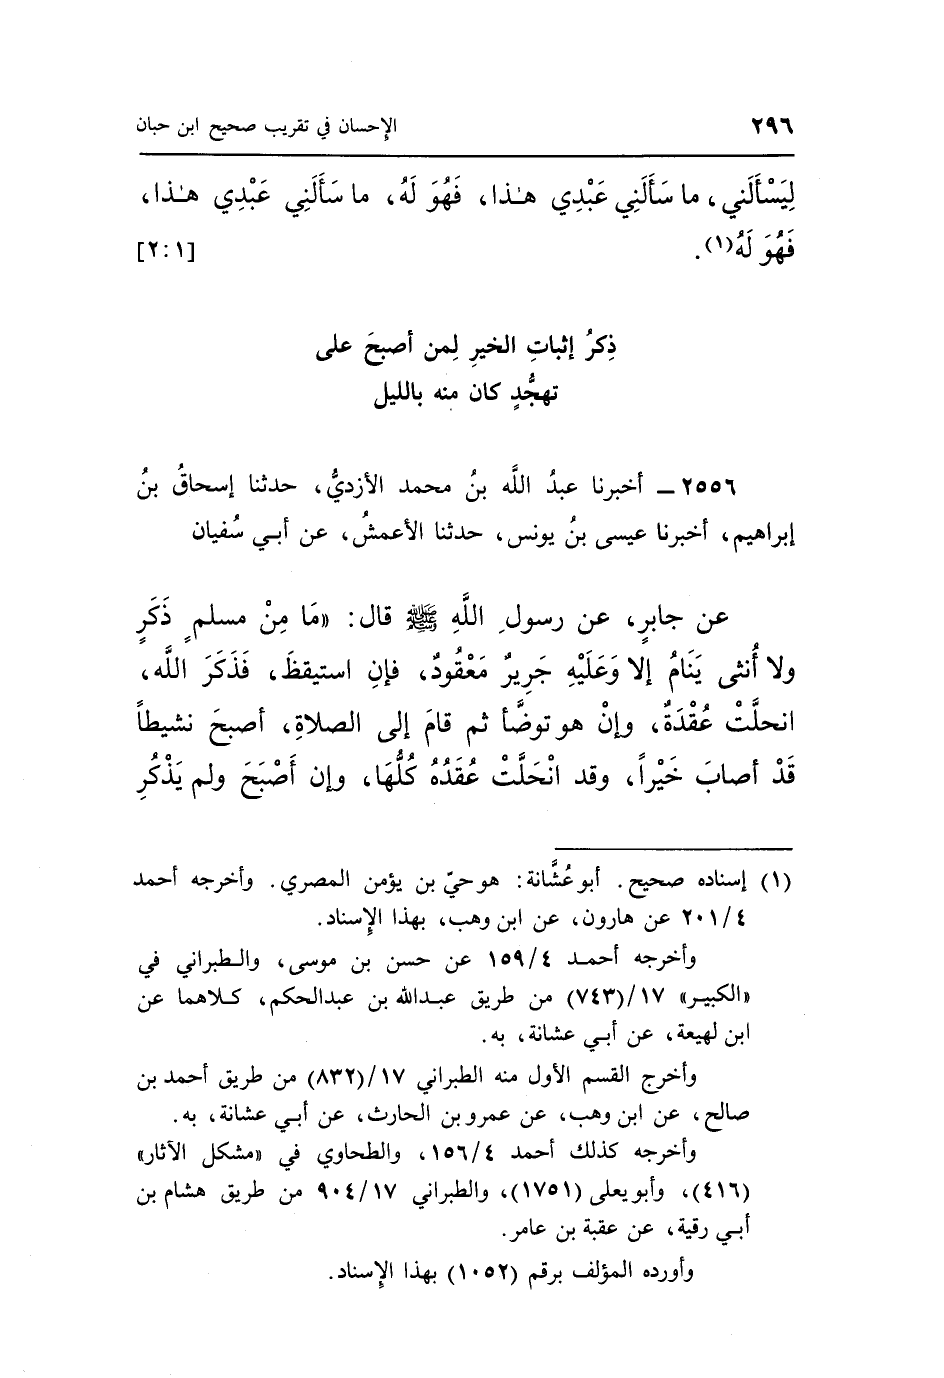 ٢٩٦ الإحسان في تقريب صحيح ابن حبان
لِيَسْأَلَني، ما سَأَلَنِي عَبْدِي هـٰذا، فَهُوَ لَهُ، ما سَأَلَنِي عَبْدِي هـٰذا،
فَهُوَ لَهُ(١). [١:٢]
ذِكرُ إثباتِ الخيرِ لِمن أصبحَ على
تهجُّدٍ كان منه بالليل
٢٥٥٦ ـ أخبرنا عبدُ اللَّه بنُ محمد الأزديُّ، حدثنا إسحاقُ بنُ
إبراهيم، أخبرنا عيسى بنُ يونس، حدثنا الأعمشُ، عن أبي سُفيان
عن جابرٍ، عن رسولِ اللَّهِ ﷺ قال: «مَا مِنْ مسلمٍ ذَكَرٍ
ولا أُنثى يَنَامُ إلا وَعَلَيْهِ جَرِيرٌ مَعْقُودٌ، فإنِ استيقظَ، فَذَكَرَ اللَّه،
انحلَّتْ عُقْدَةٌ، وإنْ هو توضَّأ ثم قامَ إلى الصلاةِ، أصبحَ نشيطاً
قَدْ أصابَ خَيْراً، وقد انْحَلَّتْ عُقَدُهُ كُلُّهَا، وإن أَصْبَحَ ولم يَذْكُرِ
(١) إسناده صحيح. أبو عُشَّانة: هو حيّ بن يؤمن المصري. وأخرجه أحمد
٢٠١/٤ عن هارون، عن ابن وهب، بهذا الإسناد.
وأخرجه أحمد ١٥٩/٤ عن حسن بن موسى، والطبراني في
«الكبير» ١٧/(٧٤٣) من طريق عبدالله بن عبدالحكم، كلاهما عن
ابن لهيعة، عن أبي عشانة، به.
وأخرج القسم الأول منه الطبراني ١٧/(٨٣٢) من طريق أحمد بن
صالح، عن ابن وهب، عن عمرو بن الحارث، عن أبي عشانة، به.
وأخرجه كذلك أحمد ١٥٦/٤، والطحاوي في «مشكل الآثار»
(٤١٦)، وأبو يعلى (١٧٥١)، والطبراني ٩٠٤/١٧ من طريق هشام بن
أبي رقية، عن عقبة بن عامر.
وأورده المؤلف برقم (١٠٥٢) بهذا الإسناد.